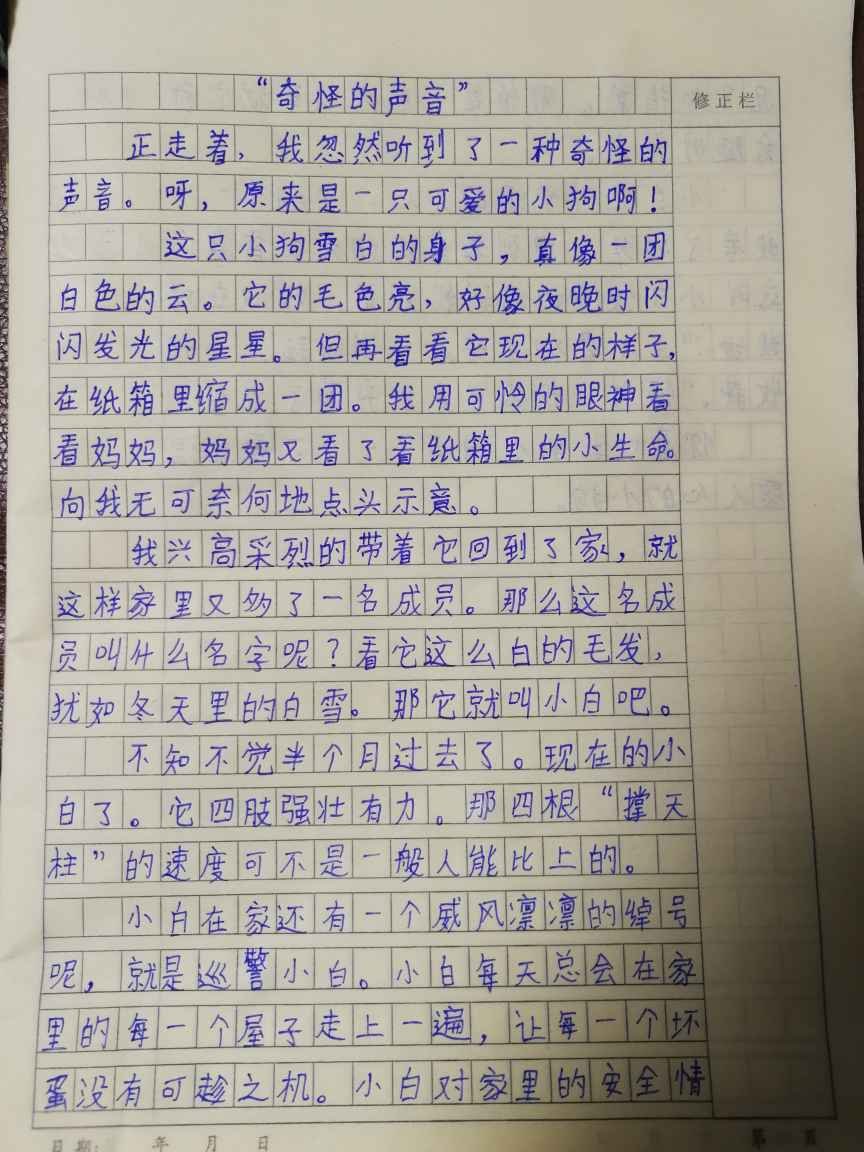 “奇怪的声音”
修正栏
正走着，我忽然听到了一种奇怪的
声音。呀，原来是一只可爱的小狗啊！
这只小狗雪白的身子，真像一团
白色的云。它的毛色亮，好像夜晚时闪
闪发光的星星。但再看看它现在的样子，
在纸箱里缩成一团。我用可怜的眼神看
看妈妈，妈妈又看了看纸箱里的小生命。
向我无可奈何地点头示意。
我兴高采烈的带着它回到了家，就
这样家里又多了一名成员。那么这名成
员叫什么名字呢？看它这么白的毛发，
犹如冬天里的白雪。那它就叫小白吧。
不知不觉半个月过去了。现在的小
白了。它四肢强壮有力。那四根“撑天
柱”的速度可不是一般人能比上的。
小白在家还有一个威风凛凛的绰号
呢，就是巡警小白。小白每天总会在家
里的每一个屋子走上一遍，让每一个坏
蛋没有可趁之机。小白对家里的安全情
日期： 年 月 日 第 页